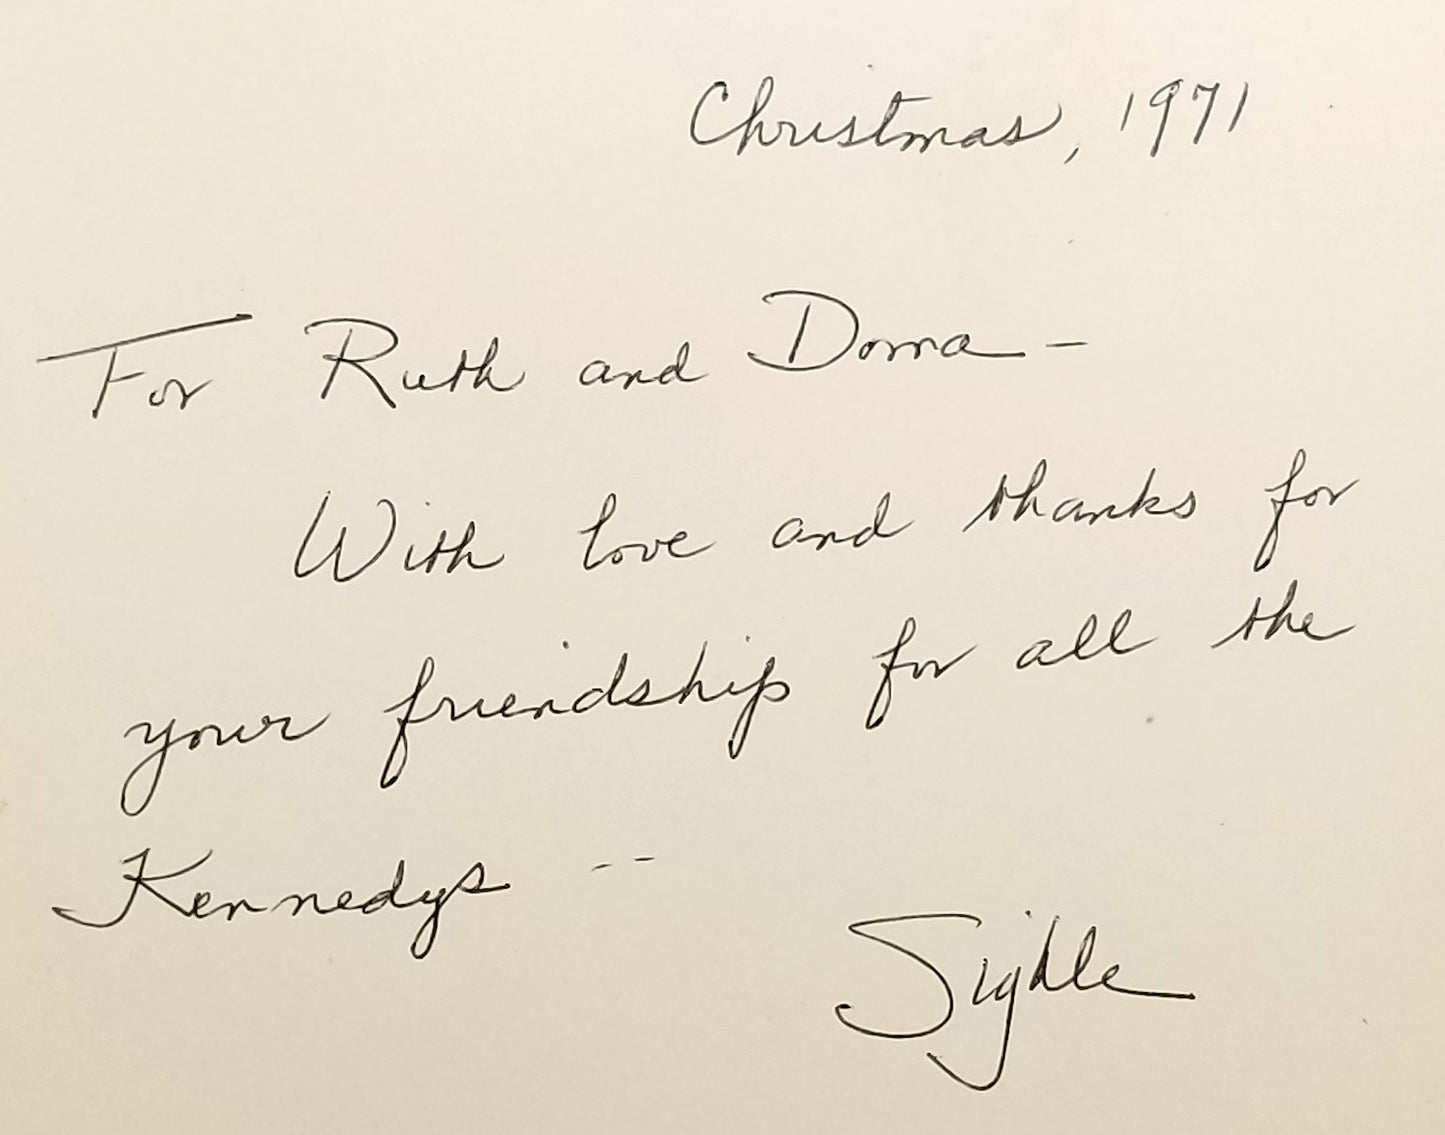 Christmas, 1971
For Ruth and Dorna –
With love and thanks for
your friendship for all the
Kennedys --
Sighle